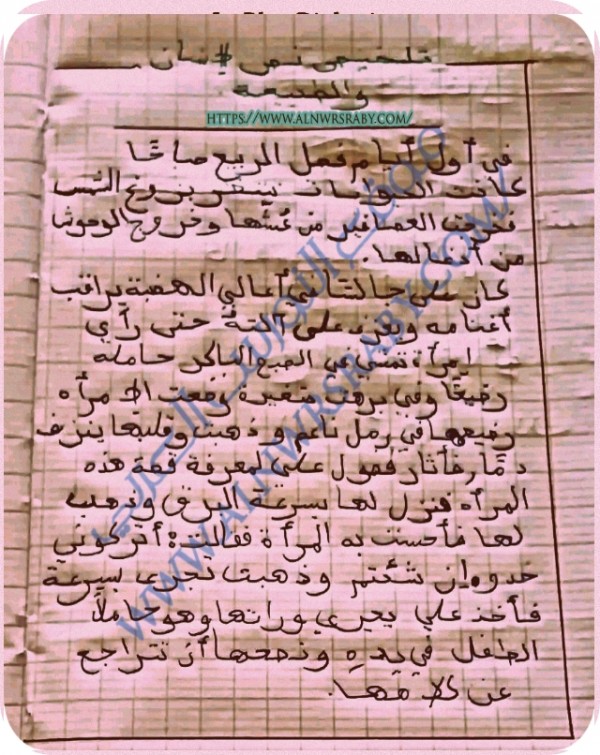 تلخيص نص الإنسان
والطبيعة
HTTPS//WWW.ALNWRSRABY.COM/
في أول أيام فصل الربيع صباحًا
كانت الحيوانات تشعر ببزوغ الشمس
فخرجت العصافير من عُشها وخروج الوحوش
من أدغالها.
كان علي جالسًا في أعالي الهضبة يراقب
أغنامه ويعزف على آلته حتى رأى
إمرأة تمشي في الصبح الباكر حاملة
رضيعًا وفي برهت صغيرة وضعت الإمرأة
رضيعها في رمل ناعم وذهبت وقلبها ينزف
دمًا، فأثار فضول علي لمعرفة قصة هذه
المرأة فنزل لها بسرعة البرق وذهب
لها فأحست به المرأة فقالت: أتركوني
خدوه إن شئتم وذهبت تجري بسرعة
فأخذ علي يجري وراءها وهو حاملًا
الطفل في يده ونصحها أن تتراجع
عن كلامها.
WWW.ALNWRSRABY.COM/